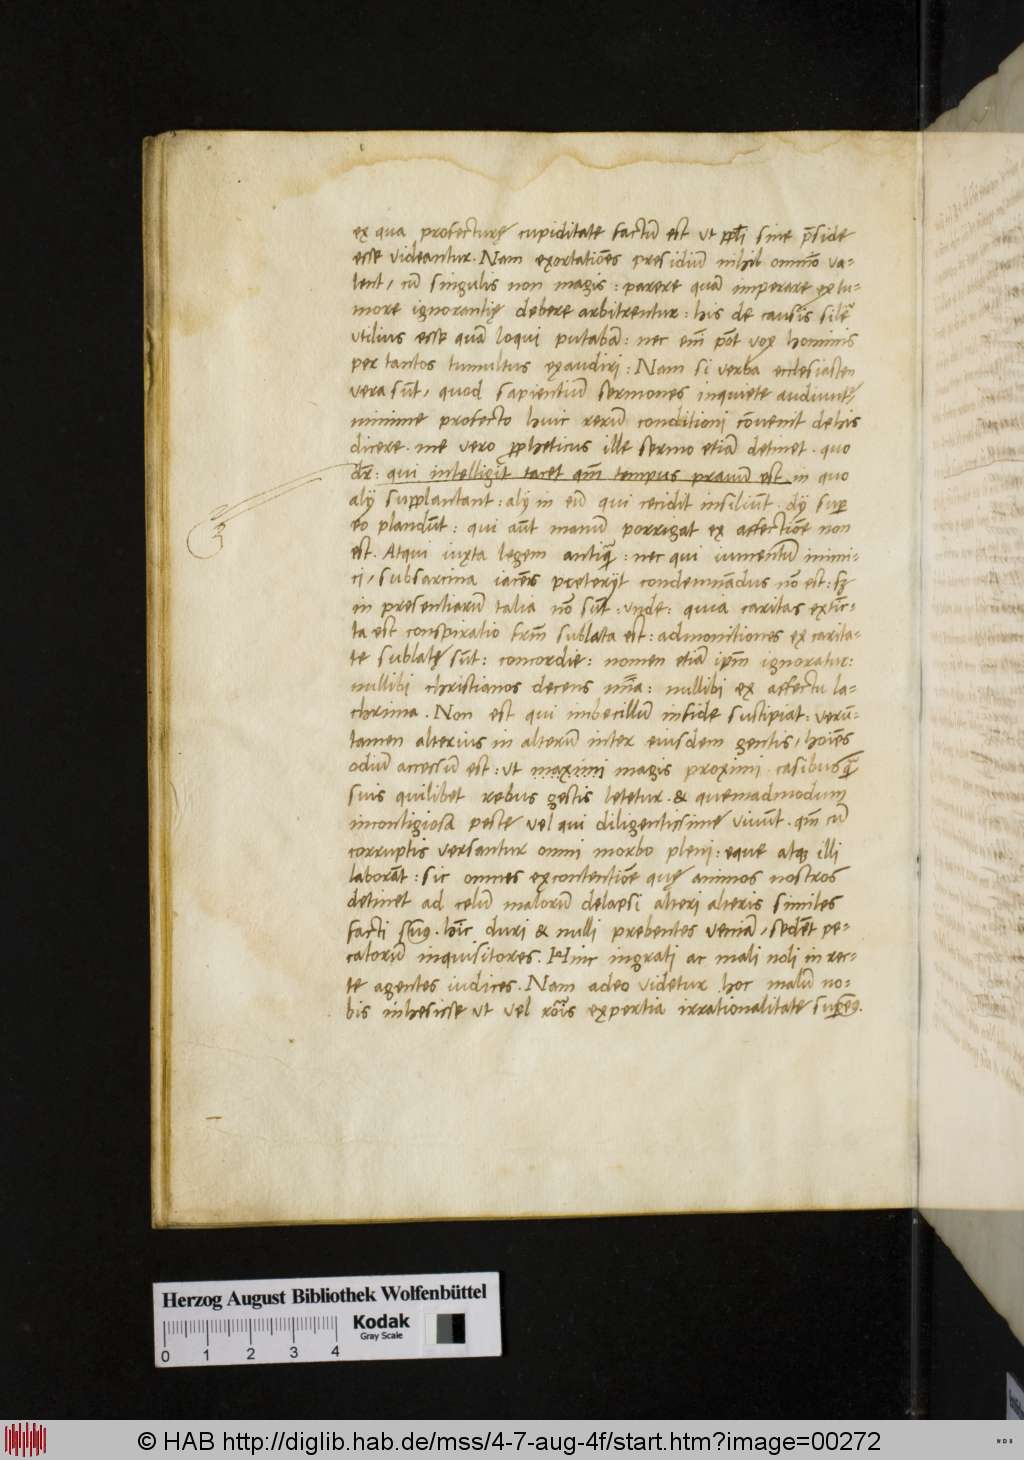 ex qua profecturę cupiditate factū est ut ppl̄i sine p̄side
esse videantur. Nam exortatiōes presidiū nihil omnīo va=
lent, cū singulis non magis: parere quā imperare ex tu=
more ignorantię debere arbitrentur: his de causis silē
utilius esse quā loqui putabā: nec em̄ pōt vox hominis
per tantos tumultus exaudiri: Nam si verba ecclesiasten
vera sūt, quod sapientiū sermones inquiete audiunt,
minime profecto huic rerū conditioni cōvenit de his
dicere. me vero ppheticus ille sermo etiā detinet. quo
dr̄: qui intelligit tacet qm̄ tempus pravū est in quo
alij supplantant: alij in eū qui cecidit insiliūt. dij sup
eo plandūt: qui aūt manū porrigat ex affectiōe non
est. Atqui iuxta legem antiquā: nec qui iumentū inimi=
ci, sub sarcina iacēs pręterijt condemnādus nō est: sꝫ
in presentiarū talia nō sūt: unde: quia caritas extīc=
ta est conspiratio frm̄ sublata est: admonitiones ex carita=
te sublatę sūt: concordie: nomen etiā ipm̄ ignoratur:
nullibi christianos decens mīa: nullibi ex affectu la=
chrima. Non est qui imbecillū infide sustipiat: verū=
tamen alterius in alterū inter eiusdem gentis, hoīes
odiū accessū est: ut maximi magis proximi casibusqꝫ
suis quilibet rebus gestis letetur. & quemadmodum
in contigiosa peste vel qui diligentissime vivūt. qm̄ cū
corruptis versantur omni morbo pleni: eque atqꝫ illi
laborāt: sic omnes ex contentiōe quę animos nostros
detinet ad celū malorū delapsi alteri alteris similes
facti sumꝯ. hīc duri & nulli prebentes veniā, sedēt pe=
catorū inquisitores. Hinc ingrati ac mali noli in rec=
te agentes iudices. Nam adeo videtur hoc malū no=
bis inhesisse ut vel rōis expertia irrationalitate supemꝯ.
Herzog August Bibliothek Wolfenbüttel
Kodak
Gray Scale
0 1 2 3 4
© HAB http://diglib.hab.de/mss/4-7-aug-4f/start.htm?image=00272